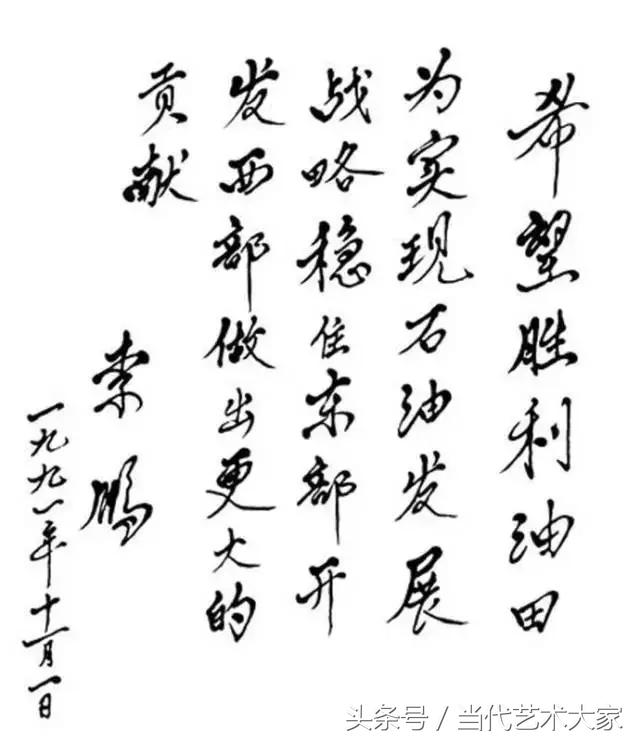 希望胜利油田
为实现石油发展
战略稳住东部开
发西部做出更大的
贡献
李鹏
一九九一年十一月一日
头条号 / 当代艺术大家